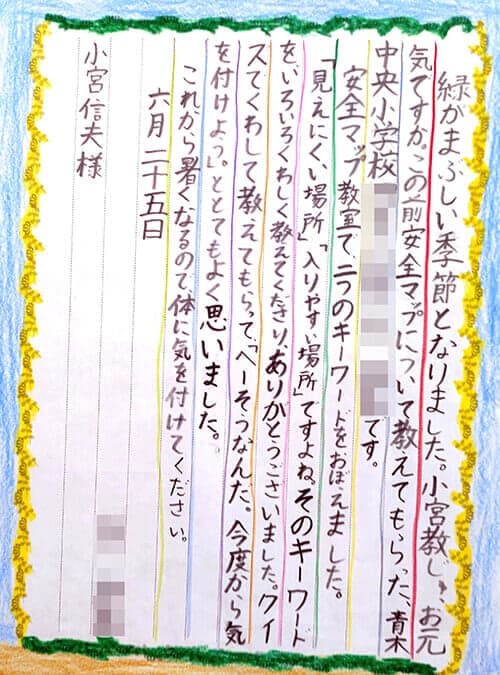 緑がまぶしい季節となりました。小宮教じゅ、お元
気ですか。この前安全マップについて教えてもらった、青木
中央小学校
です。
安全マップ教室で、二つのキーワードをおぼえました。
「見えにくい場所」「入りやすい場所」ですよね。そのキーワード
をいろいろくわしく教えてくださり、ありがとうございました。クイ
ズでくわして教えてもらって、「へーそうなんだ。今度から気
を付けよう。」ととてもよく思いました。
これから暑くなるので、体に気を付けてください。
六月二十五日
小宮信夫様